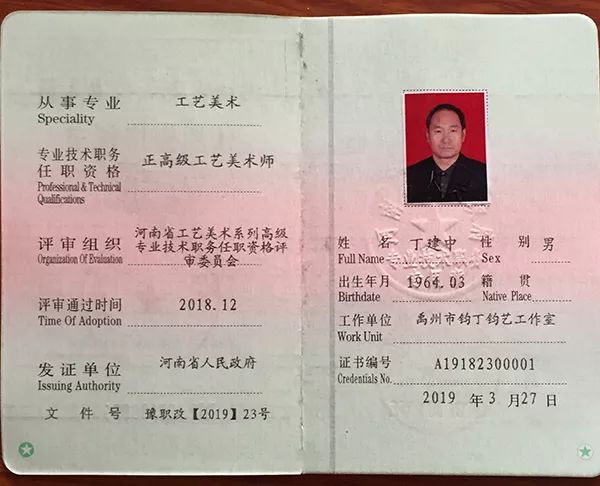 从事专业 工艺美术
Speciality
专业技术职务 正高级工艺美术师
任职资格
Professional & Technical
Qualifications
河南省工艺美术系列高级
评审组织 专业技术职务任职资格评
Organization Of Evaluation 审委员会
评审通过时间 2018.12
Time Of Adoption
发证单位 河南省人民政府
Issuing Authority
文件号 豫职改【2019】23号
姓名 丁建中 性别 男
Full Name Sex
出生年月 1964.03 籍贯
Birthdate Native Place
工作单位 禹州市钧丁钧艺工作室
Work Unit
证书编号 A19182300001
Credentials No.
2019 年 3 月 27 日